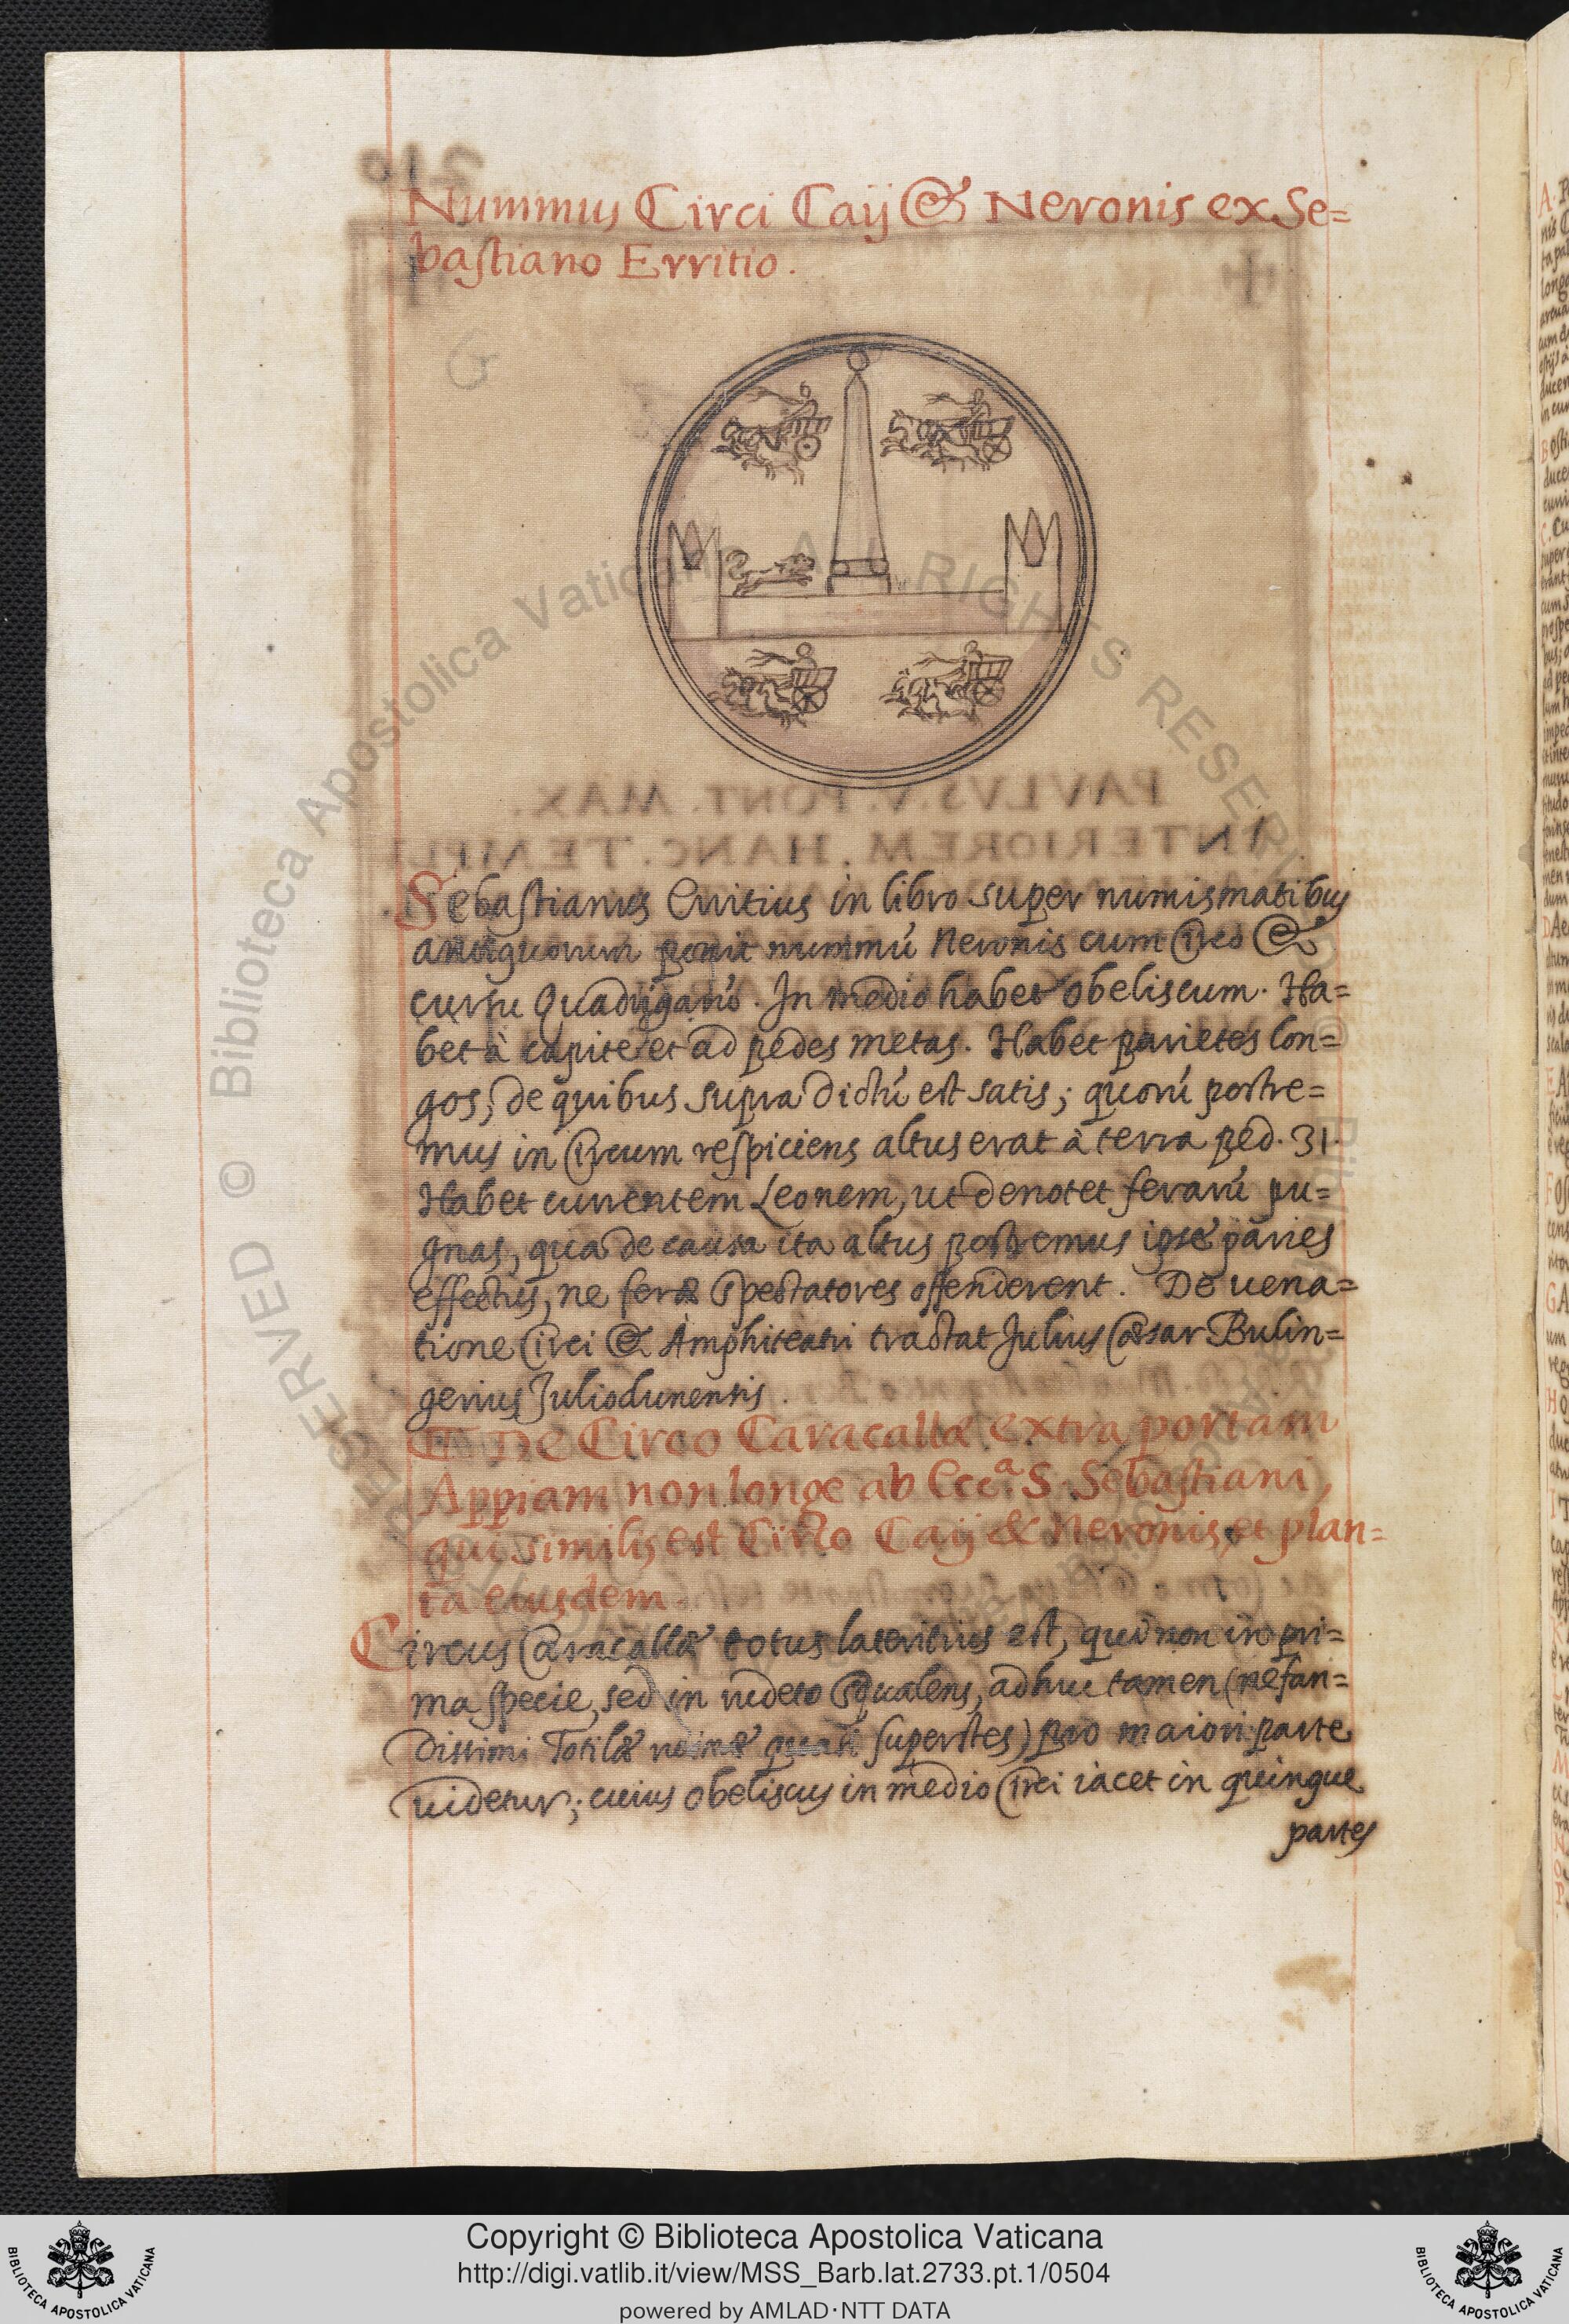 Nummus Circi Caij & Neronis ex Se=
bastiano Erritio.
Sebastianus Erritius in libro super numismatibus
antiquorum ponit nummú Neronis cum Circo &
cursu Quadrigarú. In medio habet obeliscum. Ha=
bet à capite et ad pedes metas. Habet parietes lon=
gos, de quibus supra dictú est satis; quorú postre=
mus in Circum respiciens altus erat à terra ped. 31.
Habet currentem Leonem, ut denotet ferarú pu=
gnas, qua de causa ita altus postremus ipse paries
effectus, ne feræ spectatores offenderent. De uena=
tione Circi & Amphiteatri tractat Julius Cæsar Bulin=
gerius Juliodunensis.
De Circo Caracallæ extra portam
Appiam non longe ab Ecc.ª S. Sebastiani,
qui similis est Circo Caij & Neronis, et plan=
ta eiusdem.
Circus Caracallæ totus lateritius est, qui non in pri=
ma specie, sed in uideto squalens, adhuc tamen (nefan=
dissimi Totilæ quasi superstes) pro maiori parte
uidetur; cuius obeliscus in medio Circi iacet in quinque
partes
PAVLVS. V. PONT. MAX.
INTERIOREM. HANC. TEMPLI
© Biblioteca Apostolica Vaticana ALL RIGHTS RESERVED
Copyright © Biblioteca Apostolica Vaticana
http://digi.vatlib.it/view/MSS_Barb.lat.2733.pt.1/0504
powered by AMLAD·NTT DATA
BIBLIOTECA APOSTOLICA VATICANA
BIBLIOTECA APOSTOLICA VATICANA